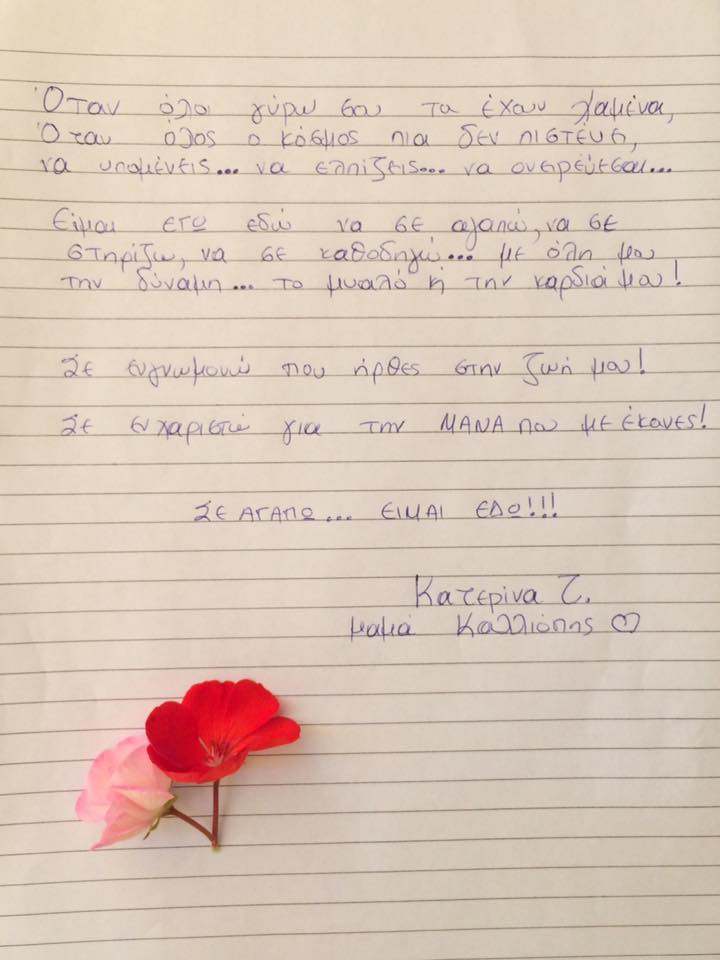 Όταν όλοι γύρω σου τα έχουν χαμένα,
Όταν όλος ο κόσμος πια δεν πιστέυει,
να υπομένεις... να ελπίζεις... να ονειρεύεσαι...
Είμαι εγώ εδώ να σε αγαπώ, να σε
στηρίζω, να σε καθοδηγώ... με όλη μου
την δύναμη... το μυαλό ή την καρδιά μου!
Σε ευγνωμονώ που ήρθες στην ζωή μου!
Σε ευχαριστώ για την ΜΑΝΑ που με έκανες!
ΣΕ ΑΓΑΠΩ... ΕΙΜΑΙ ΕΔΩ!!!
Κατερίνα Τ.
μαμά Καλλιόπης ♡